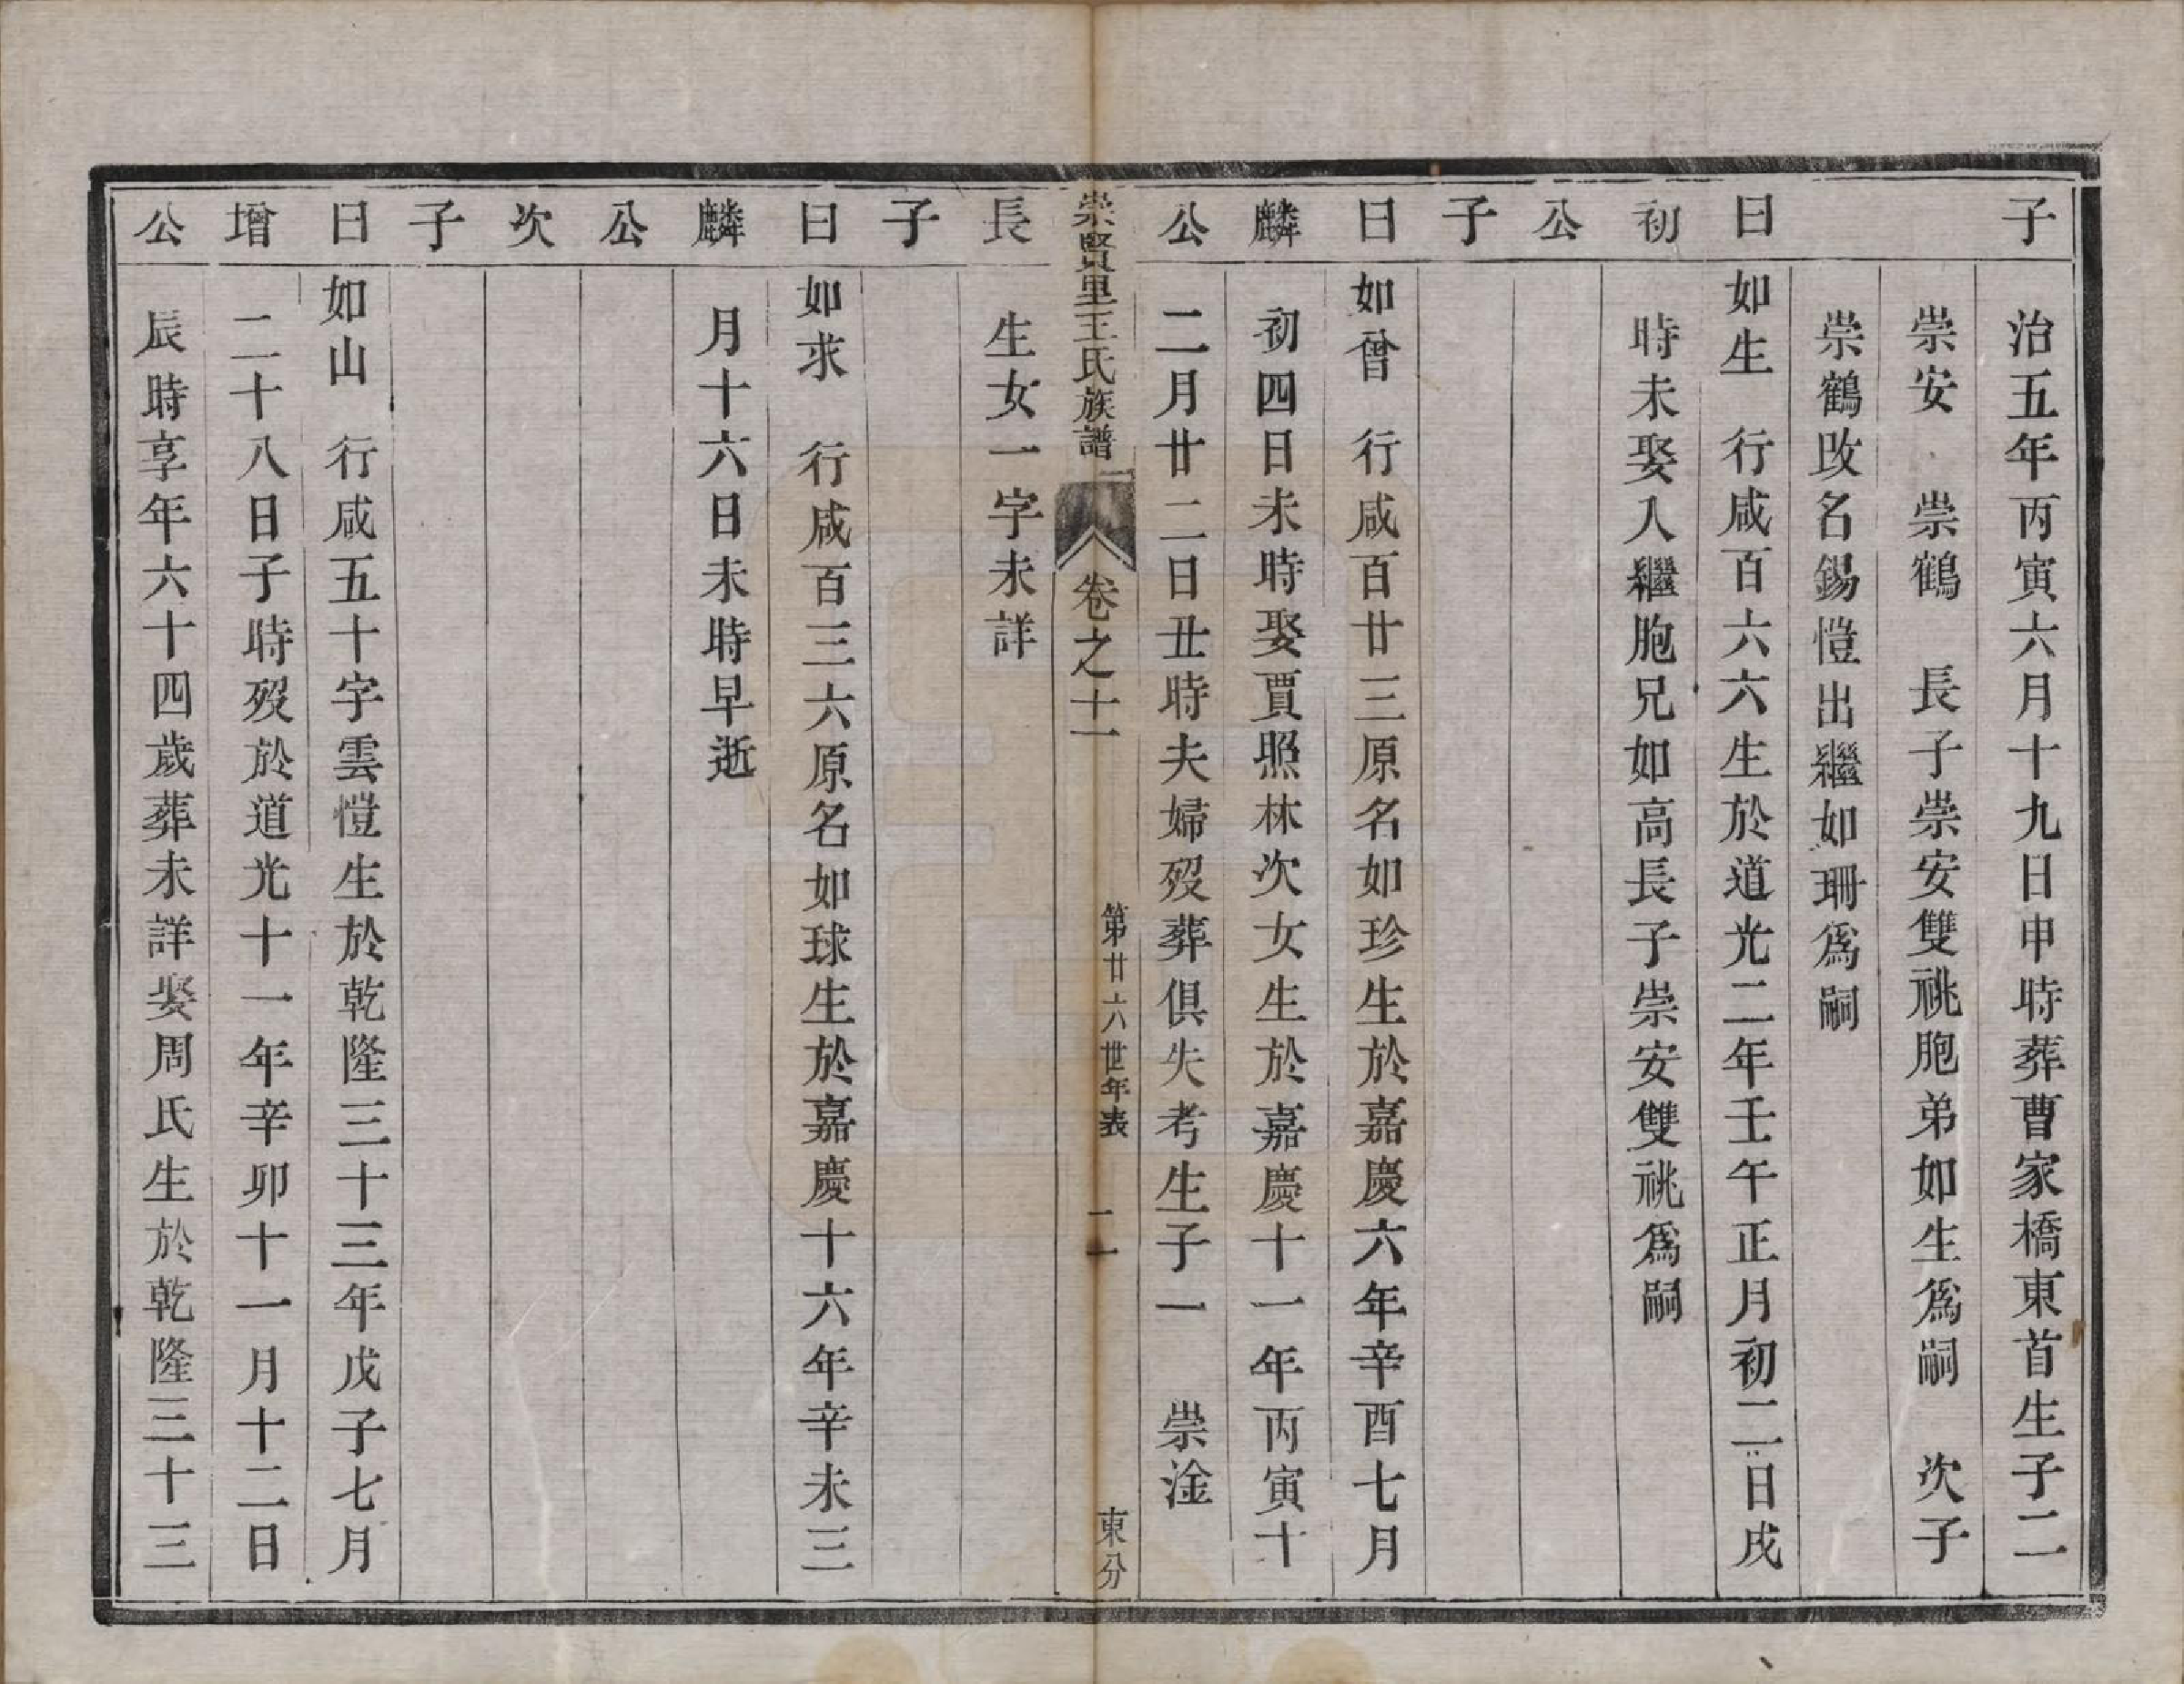 子 治五年丙寅六月十九日申時葬曹家橋東首生子二
崇安 崇鶴 長子崇安雙祧胞弟如生爲嗣 次子
崇鶴改名錫愷出繼如珊爲嗣
曰 如生 行咸百六六生於道光二年壬午正月初二日戌
初 時未娶入繼胞兄如高長子崇安雙祧爲嗣
公
子
曰 如曾 行咸百廿三原名如珍生於嘉慶六年辛酉七月
麟 初四日未時娶賈照林次女生於嘉慶十一年丙寅十
公 二月廿二日丑時夫婦歿葬俱失考生子一 崇淦
崇賢里王氏族譜 卷之十一 第廿六世年表 二一 東分
長 生女一字未詳
子
曰 如求 行咸百三六原名如球生於嘉慶十六年辛未三
麟 月十六日未時早逝
公
次
子
曰 如山 行咸五十字雲愷生於乾隆三十三年戊子七月
增 二十八日子時歿於道光十一年辛卯十一月十二日
公 辰時享年六十四歲葬未詳娶周氏生於乾隆三十三